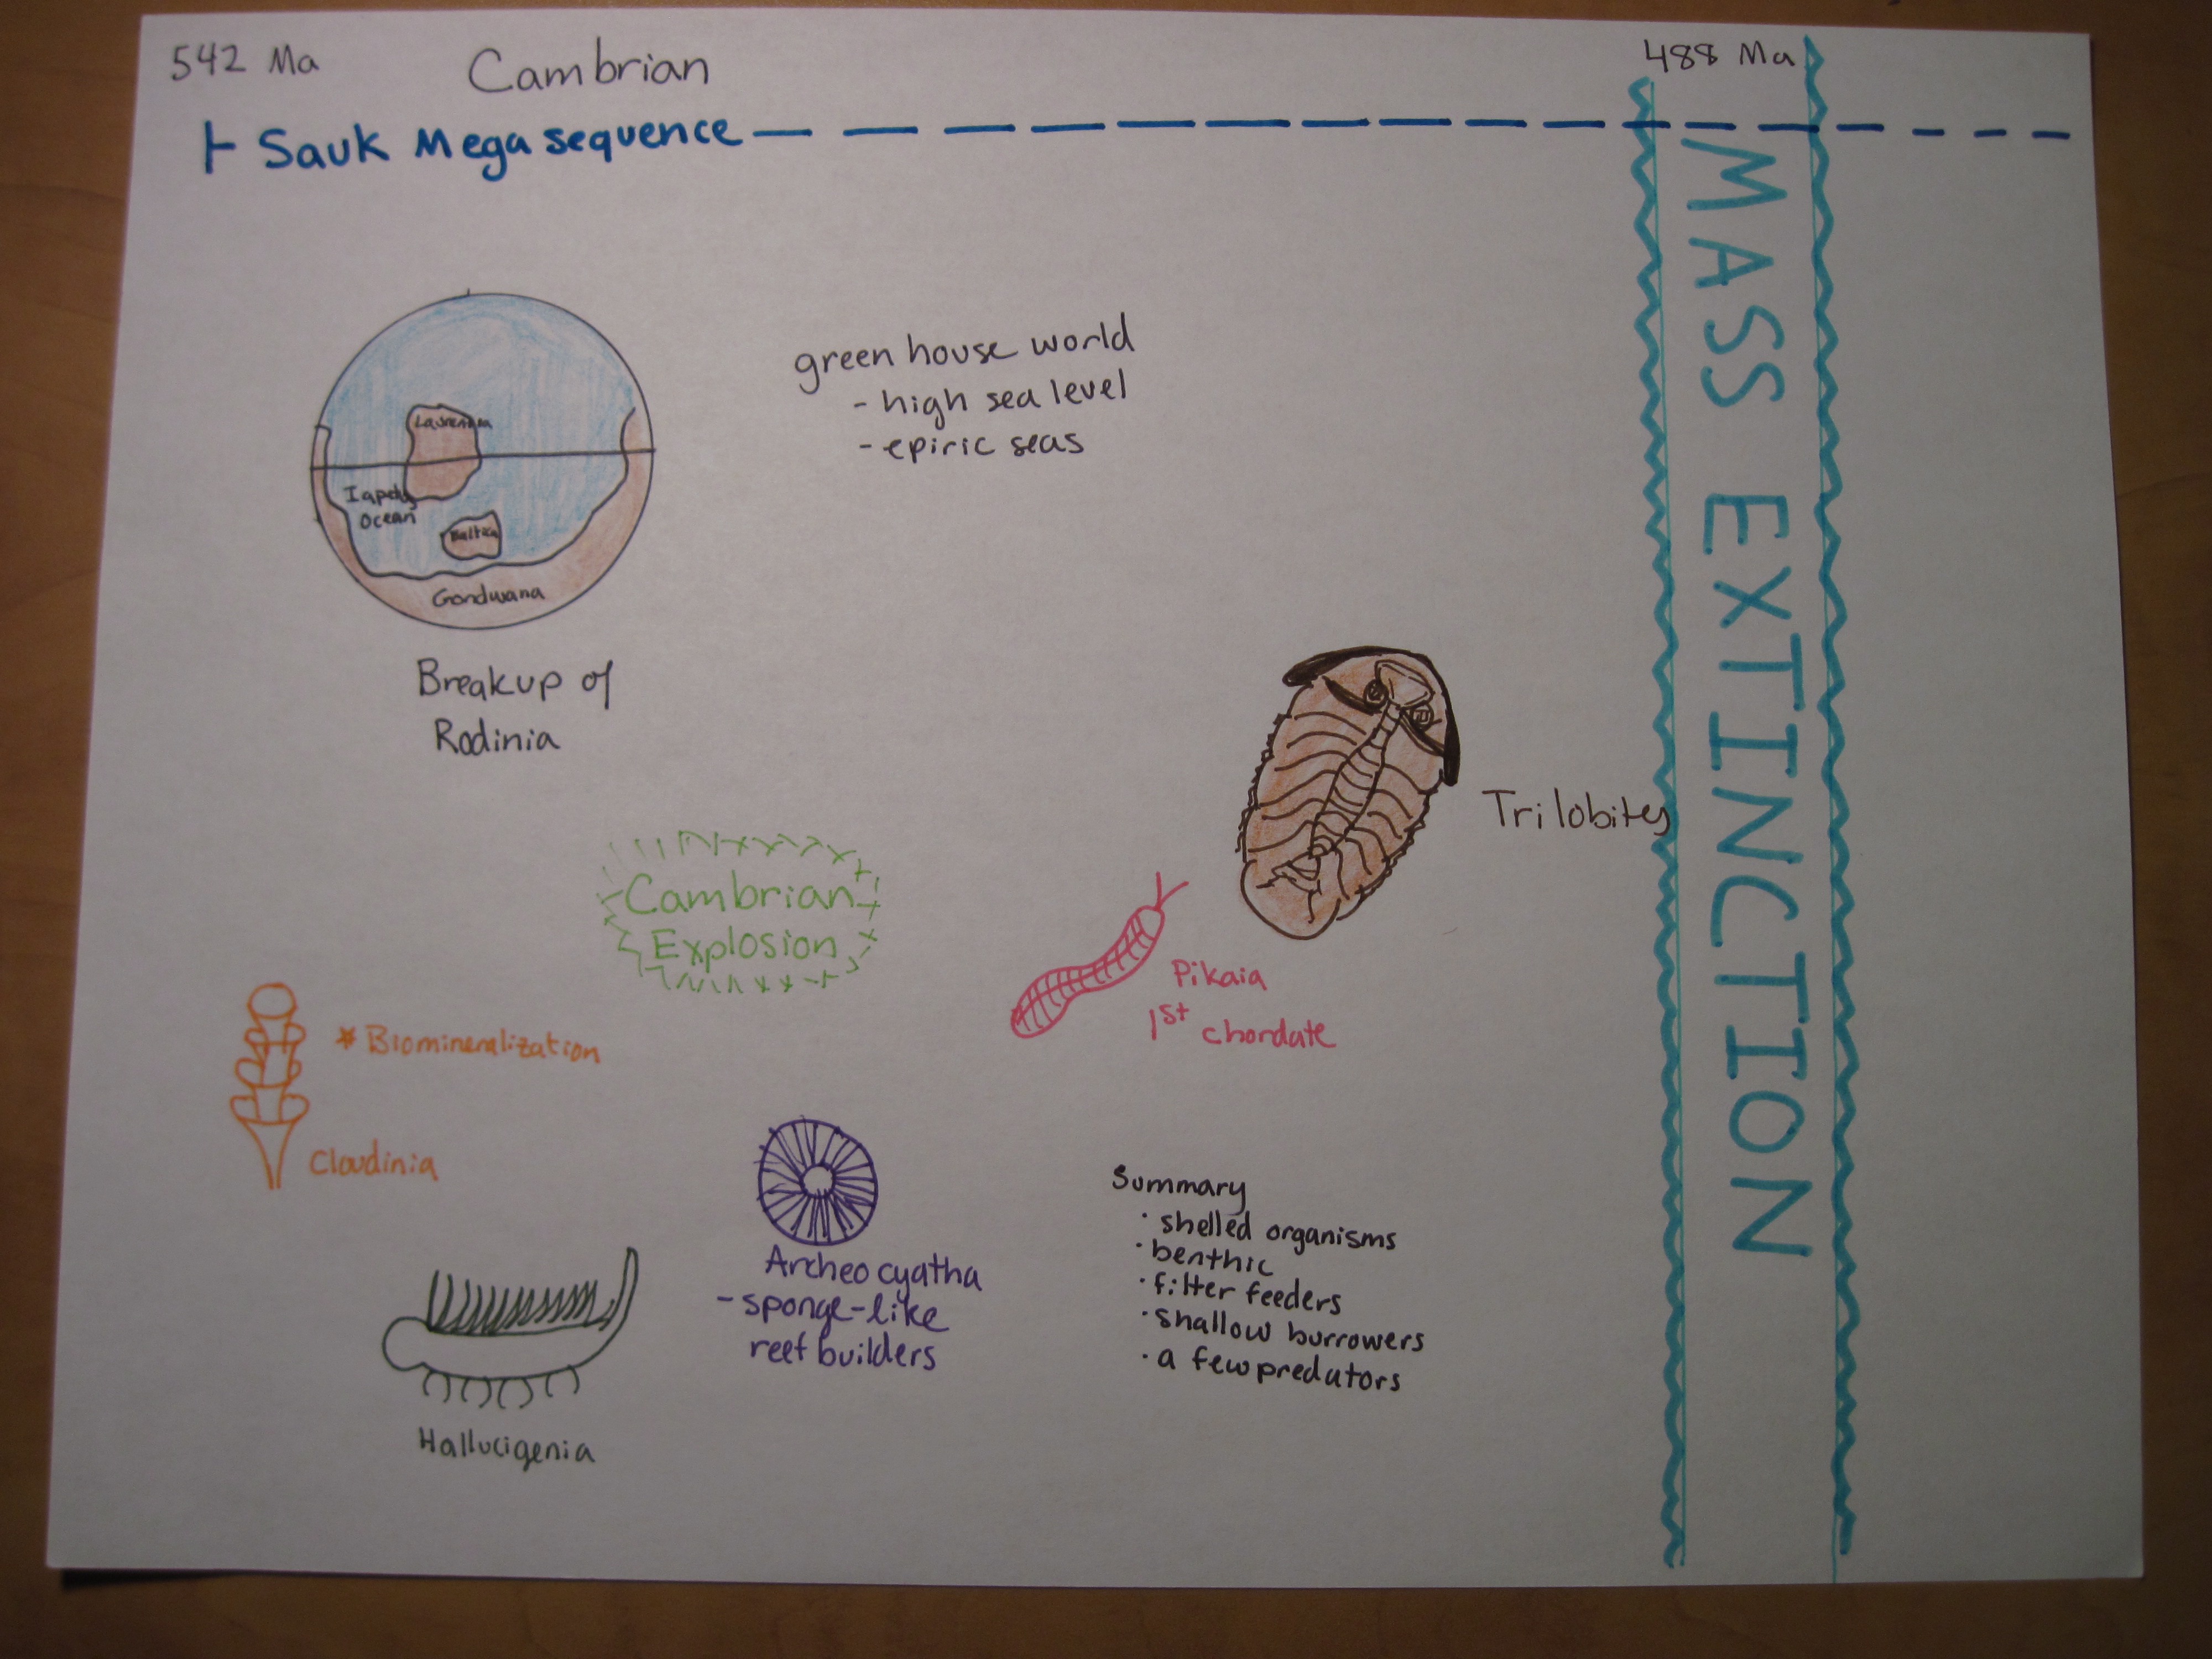 542 Ma
Cambrian
488 Ma
Sauk Mega sequence
MASS EXTINCTION
green house world
- high sea level
- epiric seas
Laurentia
Iapetus
Ocean
Baltica
Gondwana
Breakup of
Rodinia
Trilobites
Cambrian
Explosion
Pikaia
1st chordate
* Biomineralization
Cloudinia
Archeocyatha
- sponge-like
reef builders
Summary
· shelled organisms
· benthic
· filter feeders
· shallow burrowers
· a few predators
Hallucigenia